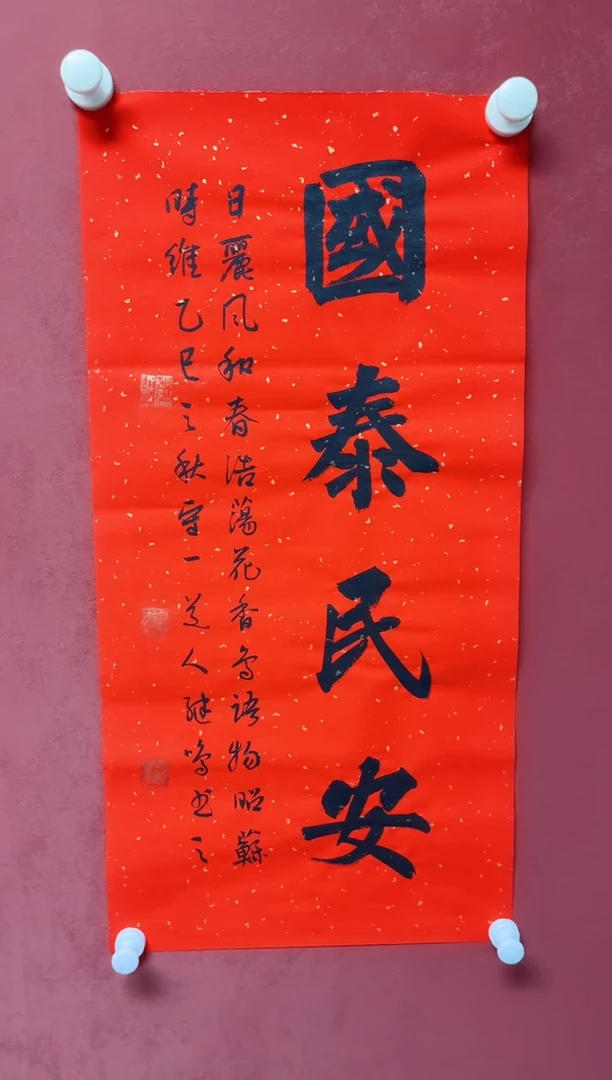 國泰民安
日麗风和春浩蕩花香鸟语物昭蘇
時维乙巳之秋守一道人继鸣书之